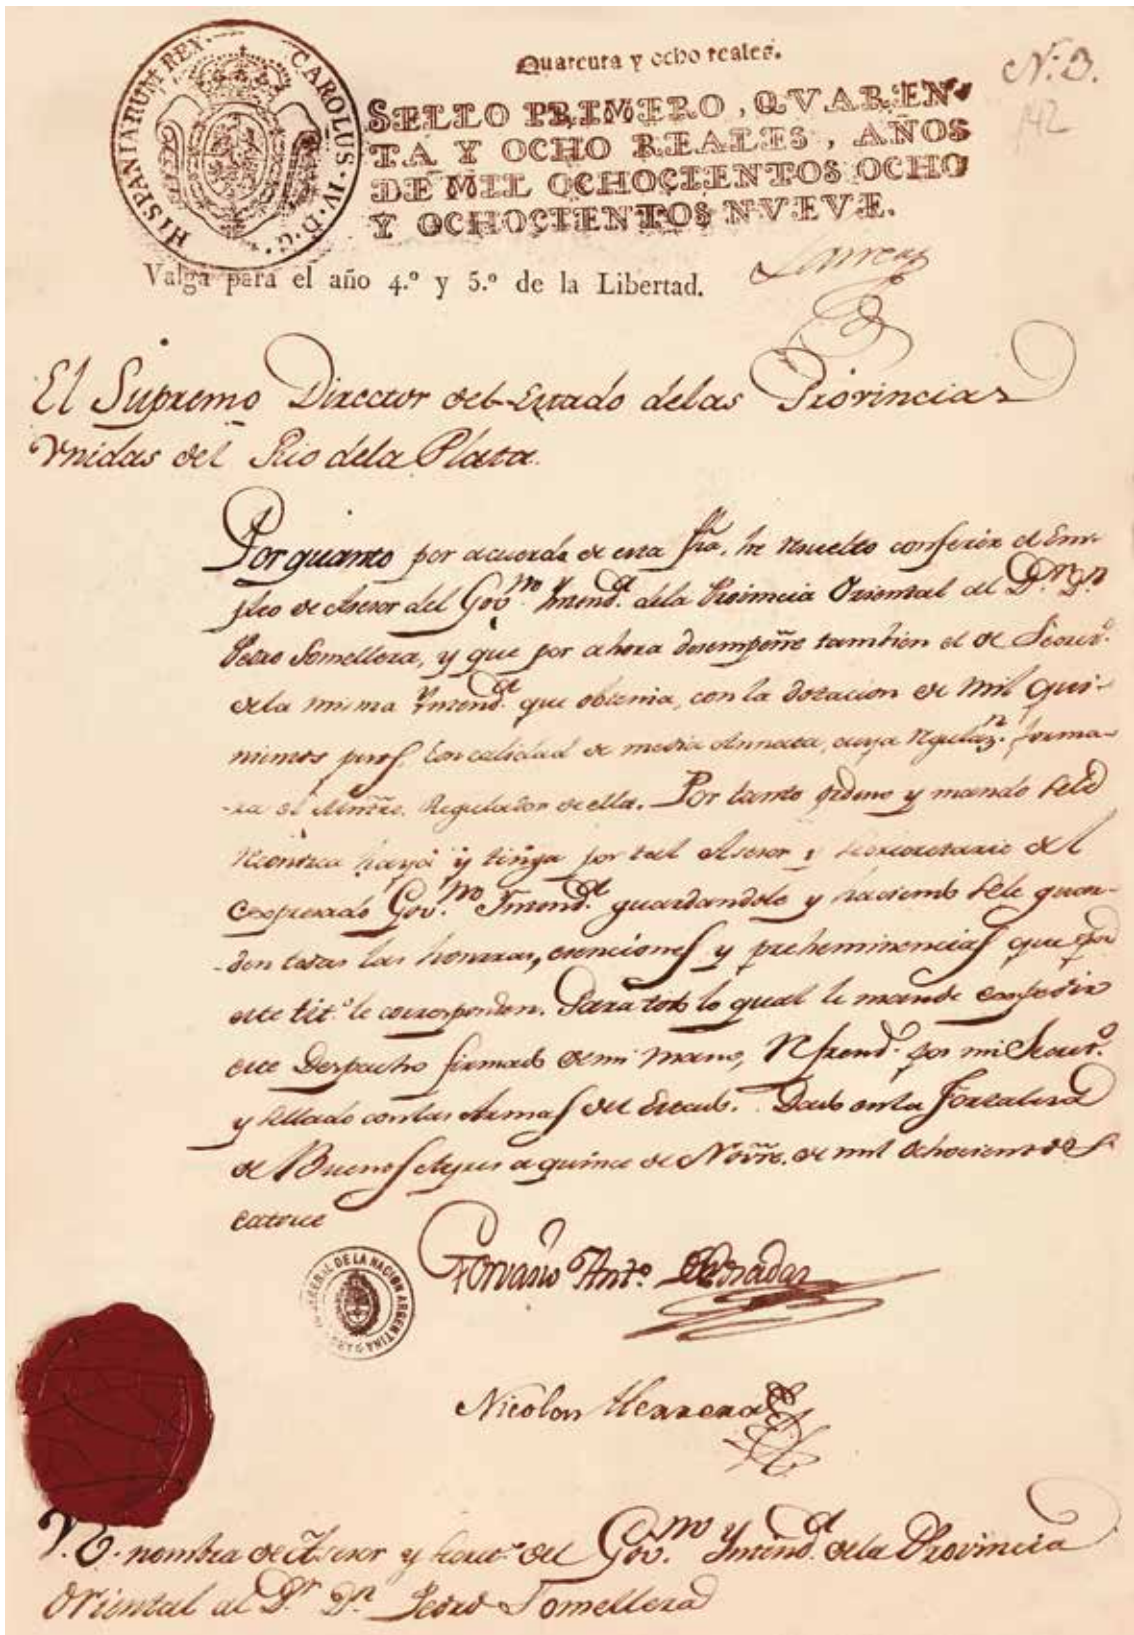 HISPANIARUM REX. CAROLUS·IV·D·G·
Quarenta y ocho reales.
N.º 3.
142
SELLO PRIMERO, QVAREN-
TA Y OCHO REALES, AÑOS
DE MIL OCHOCIENTOS OCHO
Y OCHOCIENTOS NVEVE.
Valga para el año 4.º y 5.º de la Libertad.
El Supremo Director del Estado delas Provincias
Vnidas del Rio dela Plata.
Por quanto por acuerdo de esta fha, he resuelto conferir el Em-
pleo de Asesor del Gov.no Intend.a dela Provincia Oriental al D.r D.n
Pedro Somellera, y que por ahora desempeñe tambien el de Secret.o
dela misma Intend.a que obtenia, con la dotacion de mil qui-
nientos pesos, con calidad de media Annata, cuya regulaz.n forma-
-ra el Mintro. Regulador de ella. Por tanto ordeno y mando sele
reconozca haya y tenga por tal Asesor y Secretario del
expresado Gov.no Intend.a guardandole y haciendo sele guar-
-den todas las honrras, esenciones y preheminencias que por
este tit.o le corresponden. Para todo lo qual le mande expedir
este Despacho firmado de mi mano, refrend.o por mi Secret.o
y sellado con las Armas del Estado. Dado en la Fortaleza
de Buenos Ayres a quince de Novre. de mil ochocientos
catorce
Gervasio Ant.o Posadas
GENERAL DE LA NACION ARGENTINA
Nicolas Herrera
V.E. nombra de Asesor y Secret.o del Gov.no Intend.a dela Provincia
Oriental al D.r D.n Pedro Somellera